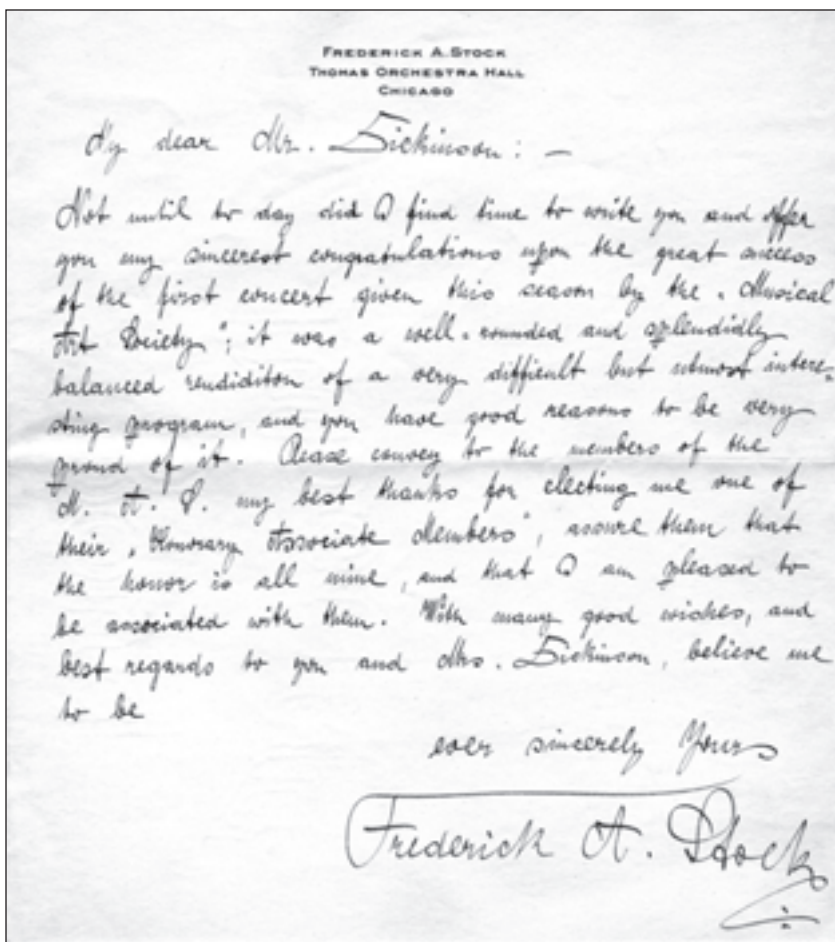 FREDERICK A. STOCK
THOMAS ORCHESTRA HALL
CHICAGO
My dear Mr. Dickinson: —
Not until to day did I find time to write you and offer
you my sincerest congratulations upon the great success
of the first concert given this season by the „Musical
Art Society"; it was a well-rounded and splendidly
balanced rendiditon of a very difficult but utmost intere-
sting program, and you have good reasons to be very
proud of it. Please convey to the members of the
M. A. S. my best thanks for electing me one of
their „Honorary Associate Members", assure them that
the honor is all mine, and that I am pleased to
be associated with them. With many good wishes, and
best regards to you and Mrs. Dickinson, believe me
to be
ever sincerely Yours
Frederick A. Stock